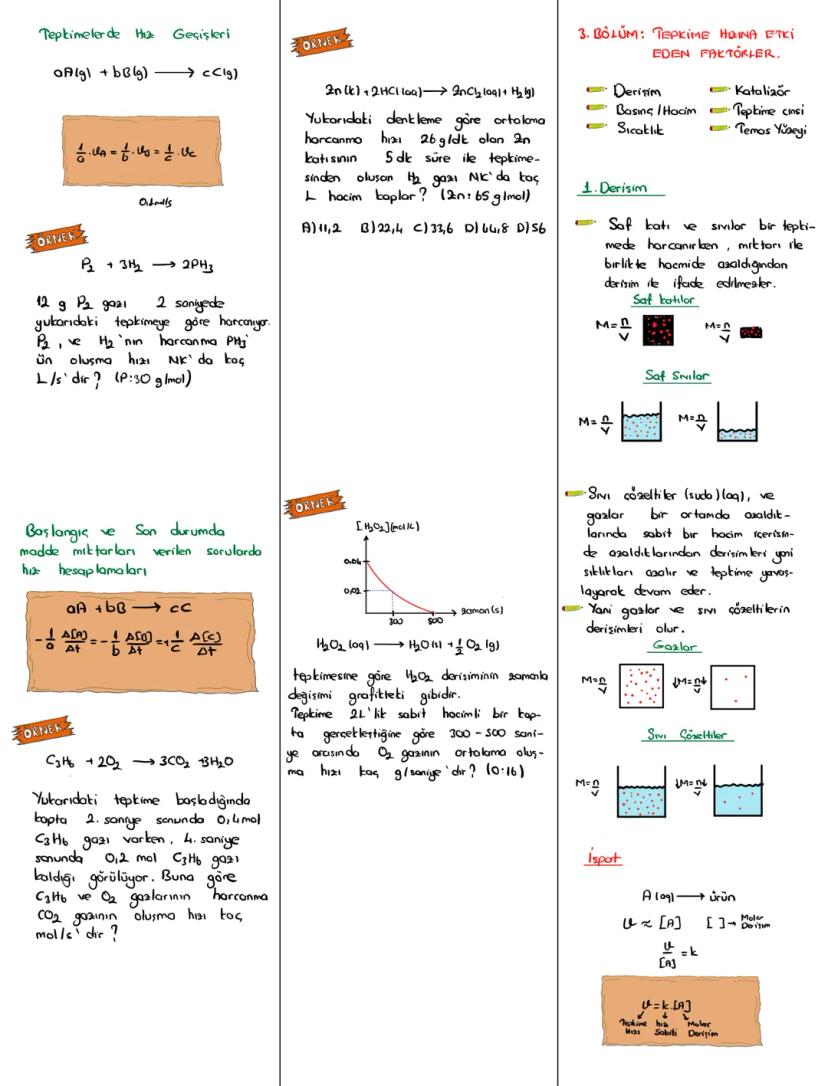 Tepkimelerde Hız Geçişleri
aA(g) + bB(g) ⟶ cC(g)
1/a · υA = 1/b · υB = 1/c · υC
ÖRNEK
P2 + 3H2 ⟶ 2PH3
12 g P2 gazı 2 saniyede
yukarıdaki tepkimeye göre harcanıyor.
P2, ve H2'nın harcanma PH3'
ün oluşma hızı NK'da kaç
L/s'dir? (P:30 g/mol)
Başlangıç ve Son durumda
madde miktarları verilen sorularda
hız hesaplamaları
aA + bB ⟶ cC
-1/a Δ[A]/Δt = -1/b Δ[B]/Δt = +1/c Δ[C]/Δt
ÖRNEK
C3H6 + 2O2 ⟶ 3CO2 + 3H2O
Yukarıdaki tepkime başladığında
kapta 2. saniye sonunda 0,4 mol
C3H6 gazı varken, 4. saniye
sonunda 0,2 mol C3H6 gazı
kaldığı görülüyor. Buna göre
C3H6 ve O2 gazlarının harcanma
CO2 gazının oluşma hızı kaç
mol/s'dir?
ÖRNEK
Zn(k) + 2HCl(aq) ⟶ ZnCl2(aq) + H2(g)
Yukarıdaki denkleme göre ortalama
harcanma hızı 26 g/dk olan Zn
katısının 5 dk süre ile tepkime-
sinden oluşan H2 gazı NK'da kaç
L hacim kaplar? (Zn: 65 g/mol)
A) 11,2 B) 22,4 C) 33,6 D) 44,8 D) 56
ÖRNEK
[H2O2](mol/L)
0,04
0,02
300 500 zaman(s)
H2O2 (aq) ⟶ H2O(s) + 1/2 O2 (g)
tepkimesine göre H2O2 derişiminin zamanla
değişimi grafikteki gibidir.
Tepkime 2L'lik sabit hacimli bir kap-
ta gerçekleştiğine göre 300-500 sani-
ye arasında O2 gazının ortalama oluş-
ma hızı kaç g/saniye'dir? (O:16)
3. BÖLÜM: TEPKİME HIZINA ETKİ
EDEN FAKTÖRLER.
Derişim
Basınç/Hacim
Sıcaklık
Katalizör
Tepkime cinsi
Temas Yüzeyi
1. Derişim
Saf katı ve sıvılar bir tepki-
mede harcanırken, miktarı ile
birlikte hacmide azaldığından
derişim ile ifade edilmezler.
Saf katılar
M=n/V M=n/V
Saf Sıvılar
M=n/V M=n/V
Sıvı çözeltiler (suda)(aq), ve
gazlar bir ortamda azaldık-
larında sabit bir hacim içerisin-
de azaldıklarından derişimleri yani
sıklıkları azalır ve tepkime yavaş-
layarak devam eder.
Yani gazlar ve sıvı çözeltilerin
derişimleri olur.
Gazlar
M=n/V ↓M=n↓/V
Sıvı Çözeltiler
M=n/V ↓M=n↓/V
İspat
A(aq) ⟶ ürün
υ ≈ [A] [ ]→ Molar Derişim
υ/[A] = k
υ = k.[A]
Tepkime Hızı hız Sabiti Molar Derişim